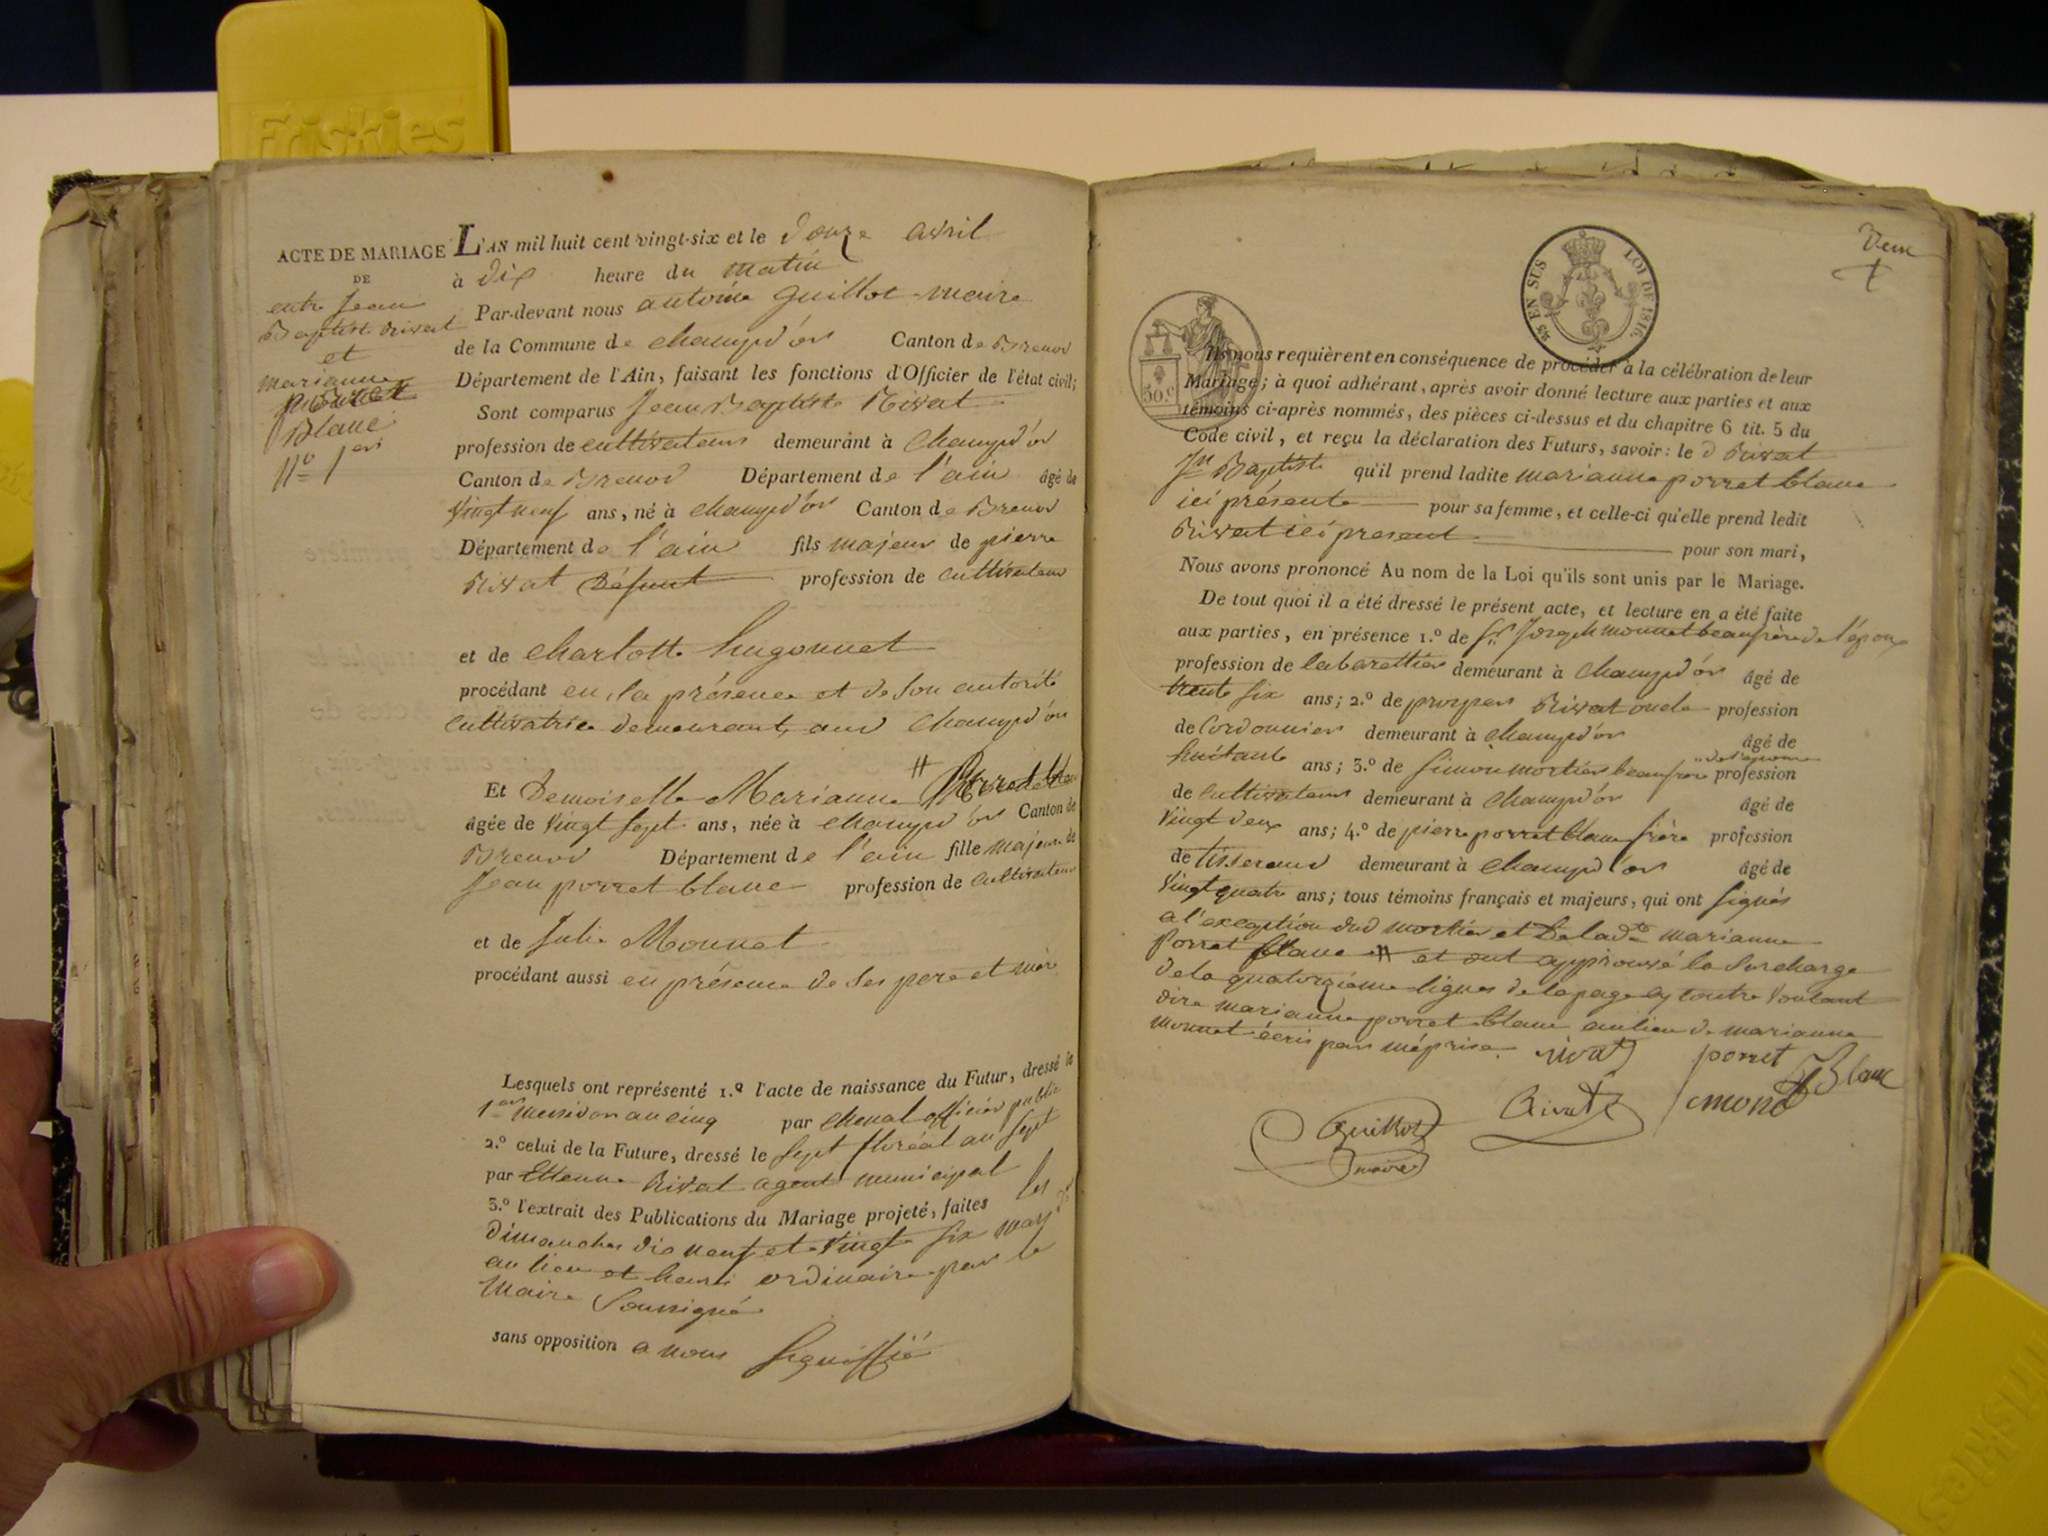 Friskies
ACTE DE MARIAGE
DE
entre Jean
Baptiste Rivat
et
marianne
porret
Blanc
N.º 1er
L'AN mil huit cent vingt-six et le douze avril
à dix heure du matin
Par-devant nous antoine Guillot maire
de la Commune de champd'or Canton de Brenod
Département de l'Ain, faisant les fonctions d'Officier de l'état civil;
Sont comparus Jean Baptiste Rivat
profession de cultivateur demeurant à Champd'or
Canton de Brenod Département de l'ain âgé de
vingt neuf ans, né à champd'or Canton de Brenod
Département de l'ain fils majeur de pierre
Rivat Défunt profession de cultivateur
et de charlotte hugonnet
procédant en sa présence et de son autorité
cultivatrice demeurant aud champd'or
Et Demoiselle Marianne # Porret blanc
âgée de vingt sept ans, née à champd'or Canton de
Brenod Département de l'ain fille majeure de
Jean porret blanc profession de cultivateur
et de Julie Monnet
procédant aussi en présence de ses pere et mère
Lesquels ont représenté 1.º l'acte de naissance du Futur, dressé le
1er messidor an cinq par officier public
2.º celui de la Future, dressé le sept floréal an sept
par Etienne Rivat agent municipal
3.º l'extrait des Publications du Mariage projeté, faites les
dimanches dix neuf et vingt six mars
au lieu et heure ordinaire par le
Maire soussigné
sans opposition a nous signiffié
25 EN SUS LOI DE 1816.
30.c
Ils nous requièrent en conséquence de procéder à la célébration de leur
Mariage; à quoi adhérant, après avoir donné lecture aux parties et aux
témoins ci-après nommés, des pièces ci-dessus et du chapitre 6 tit. 5 du
Code civil, et reçu la déclaration des Futurs, savoir: le d Rivat
Jn Baptiste qu'il prend ladite marianne porret blanc
ici présente pour sa femme, et celle-ci qu'elle prend ledit
Rivat ici present pour son mari,
Nous avons prononcé Au nom de la Loi qu'ils sont unis par le Mariage.
De tout quoi il a été dressé le présent acte, et lecture en a été faite
aux parties, en présence 1.º de Sr Joseph monnet beaufrère de l'époux
profession de cabarettier demeurant à champd'or âgé de
trente six ans; 2.º de prosper Rivat oncle profession
de Cordonnier demeurant à champd'or âgé de
huitante ans; 3.º de simon mortier beaufrere de l'épouse profession
de cultivateur demeurant à champd'or âgé de
vingt deux ans; 4.º de pierre porret blanc frère profession
de tisserand demeurant à champd'or âgé de
vingt quatre ans; tous témoins français et majeurs, qui ont signés
a l'exception dud mortier et de lade marianne
Porret blanc # et ont approuvé la surcharge
de la quatorzième lignes de la page cy contre voulant
dire marianne porret blanc au lieu de marianne
monnet écris par méprise. rivat porret
Blanc
Guillot Rivat
maire
Friskies